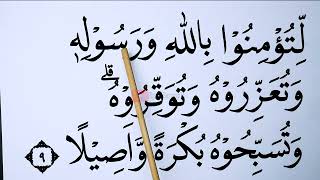 لِّتُؤْمِنُوْا بِاللّٰهِ وَرَسُوْلِهٖ
وَتُعَزِّرُوْهُ وَتُوَقِّرُوْهُ ۗ
وَتُسَبِّحُوْهُ بُكْرَةً وَّاَصِيْلًا ٩